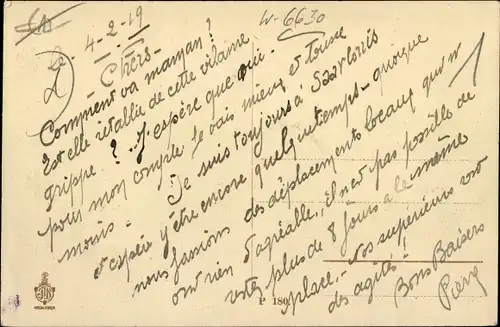 W-6630
le 4-2-19
Chers-
Comment va maman?
Est elle rétablie de cette vilaine
grippe? J'espère que oui.
pour mon compte je vais mieux et tousse
moins - Je suis toujours à Saarlouis
et espère y être encore quelque temps - quoique
nous fassions des déplacements locaux qui n'
ont rien d'agréable, il n'est pas possible de
rester plus de 8 jours à la même
place - Nos supérieurs sont
des agités!
Bons Baisers
Pierre
P 189